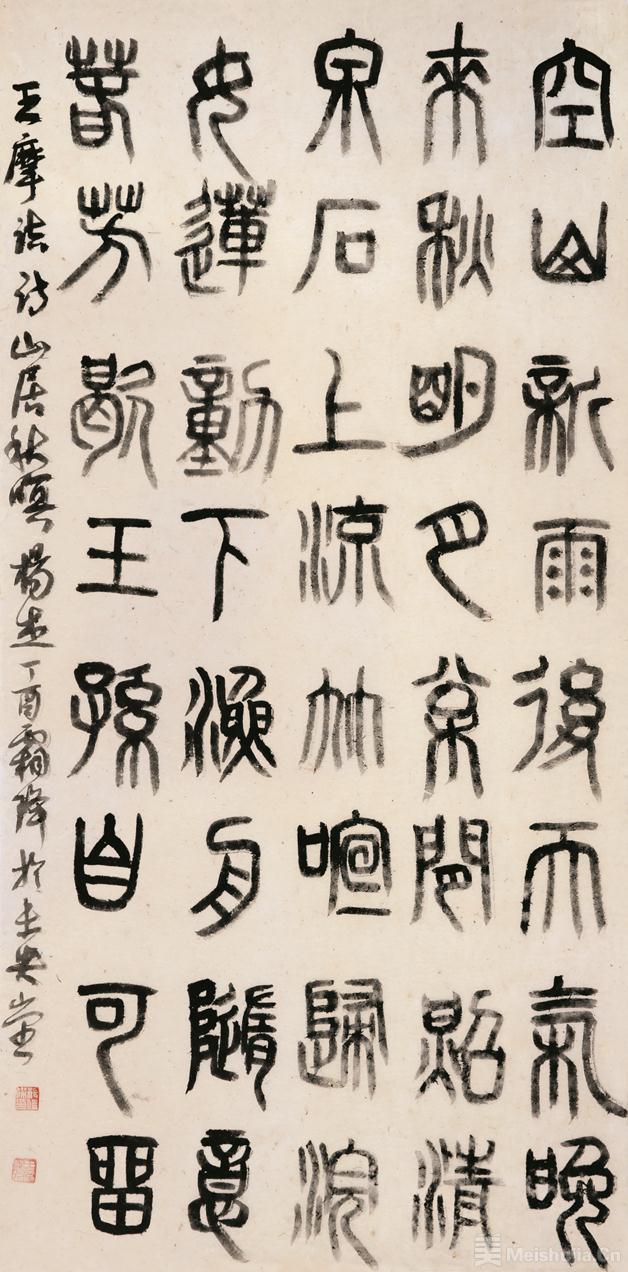 空山新雨後天氣晚
來秋明月松間照清
泉石上流竹喧歸浣
女蓮動下漁舟隨意
春芳歇王孫自可留
王摩诘诗山居秋暝 楊 丁酉霜降於未央堂
美 Meishujia.Cn